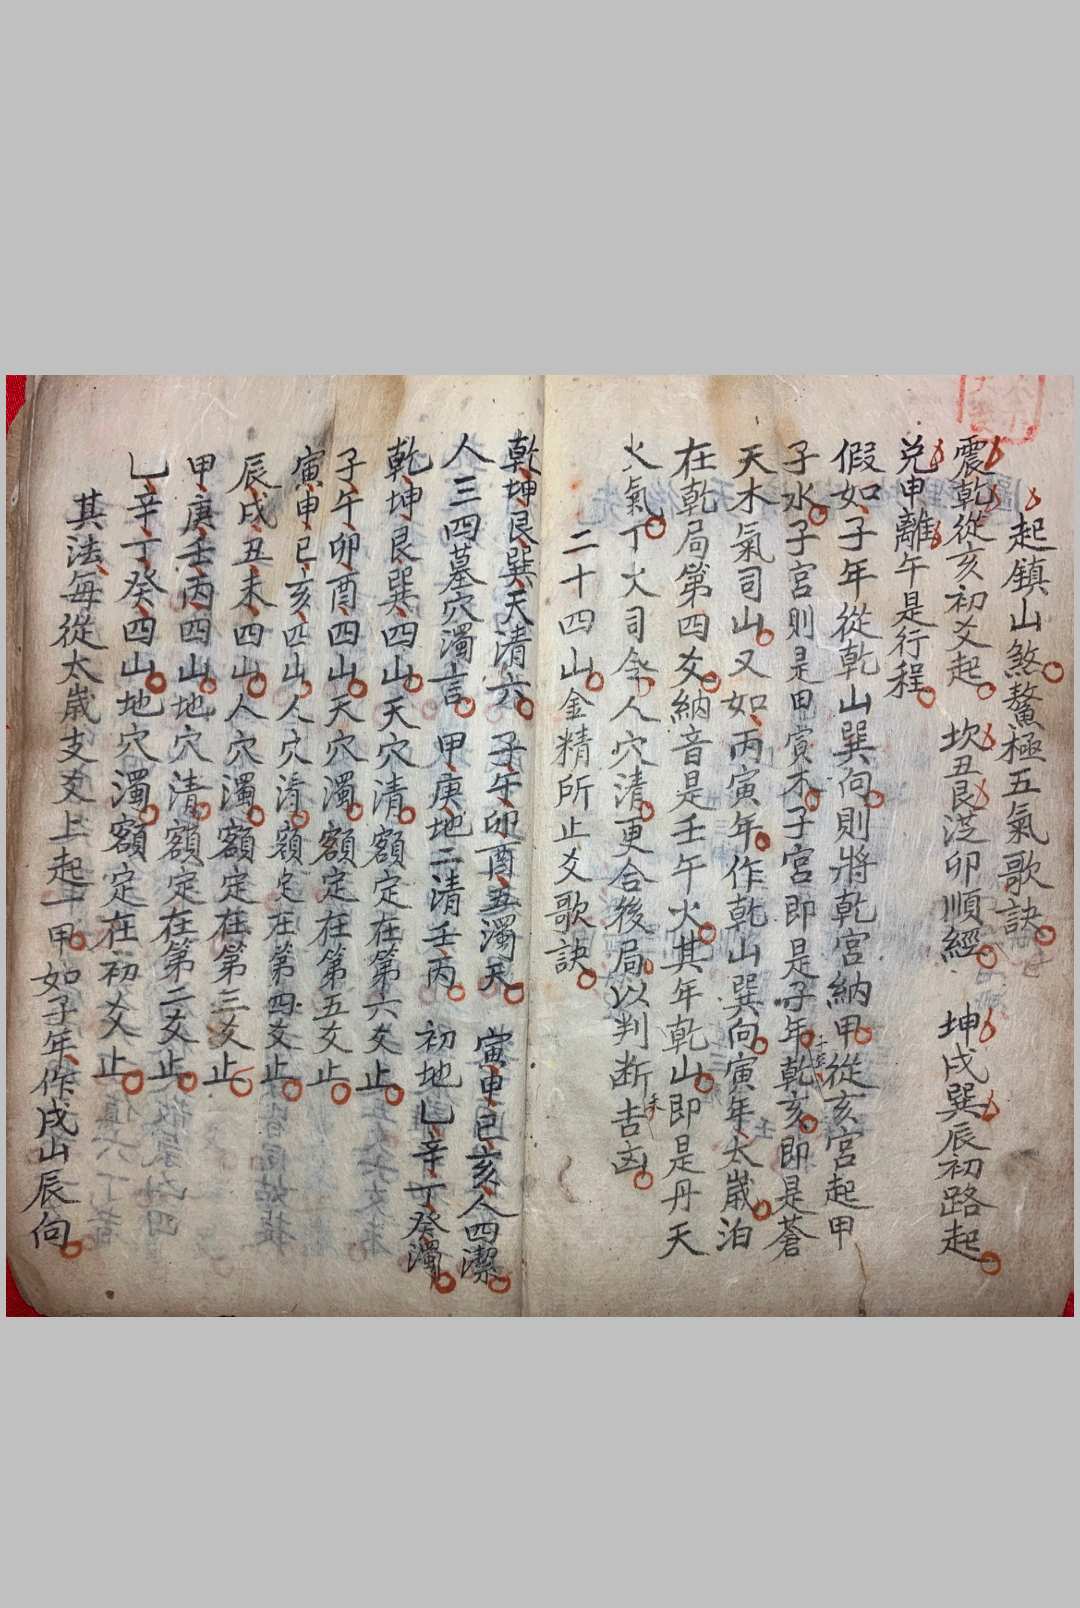 起鎮山煞鰲極五氣歌訣
震乾從亥初爻起 坎丑艮從卯順經 坤戌巽辰初路起
兌申離午是行程
假如子年從乾山巽向則將乾宮納甲從亥宮起甲
子水子宮則是甲寅木子宮即是子年乾亥即是蒼
天木氣司山又如丙寅年作乾山巽向寅年太歲泊
在乾局第四爻納音是壬午火其年乾山即是丹天
火氣丁火司令人穴清更合後局以判断吉凶
二十四山金精所止爻歌訣
乾坤艮巽天清六 子午卯酉五濁天 寅申巳亥人四潔
人三四墓穴濁言 甲庚地二清壬丙 初地乙辛丁癸濁
乾坤艮巽四山天穴清額定在第六爻止
子午卯酉四山天穴濁額定在第五爻止
寅申巳亥四山人穴清額定在第四爻止
辰戌丑未四山人穴濁額定在第三爻止
甲庚壬丙四山地穴清額定在第二爻止
乙辛丁癸四山地穴濁額定在初爻止
其法每從太歲支爻上起一甲如子年作戌山辰向